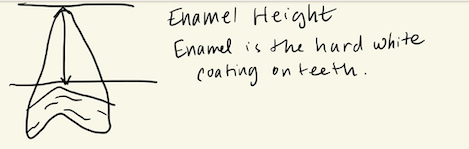 Enamel Height
Enamel is the hard white
coating on teeth.